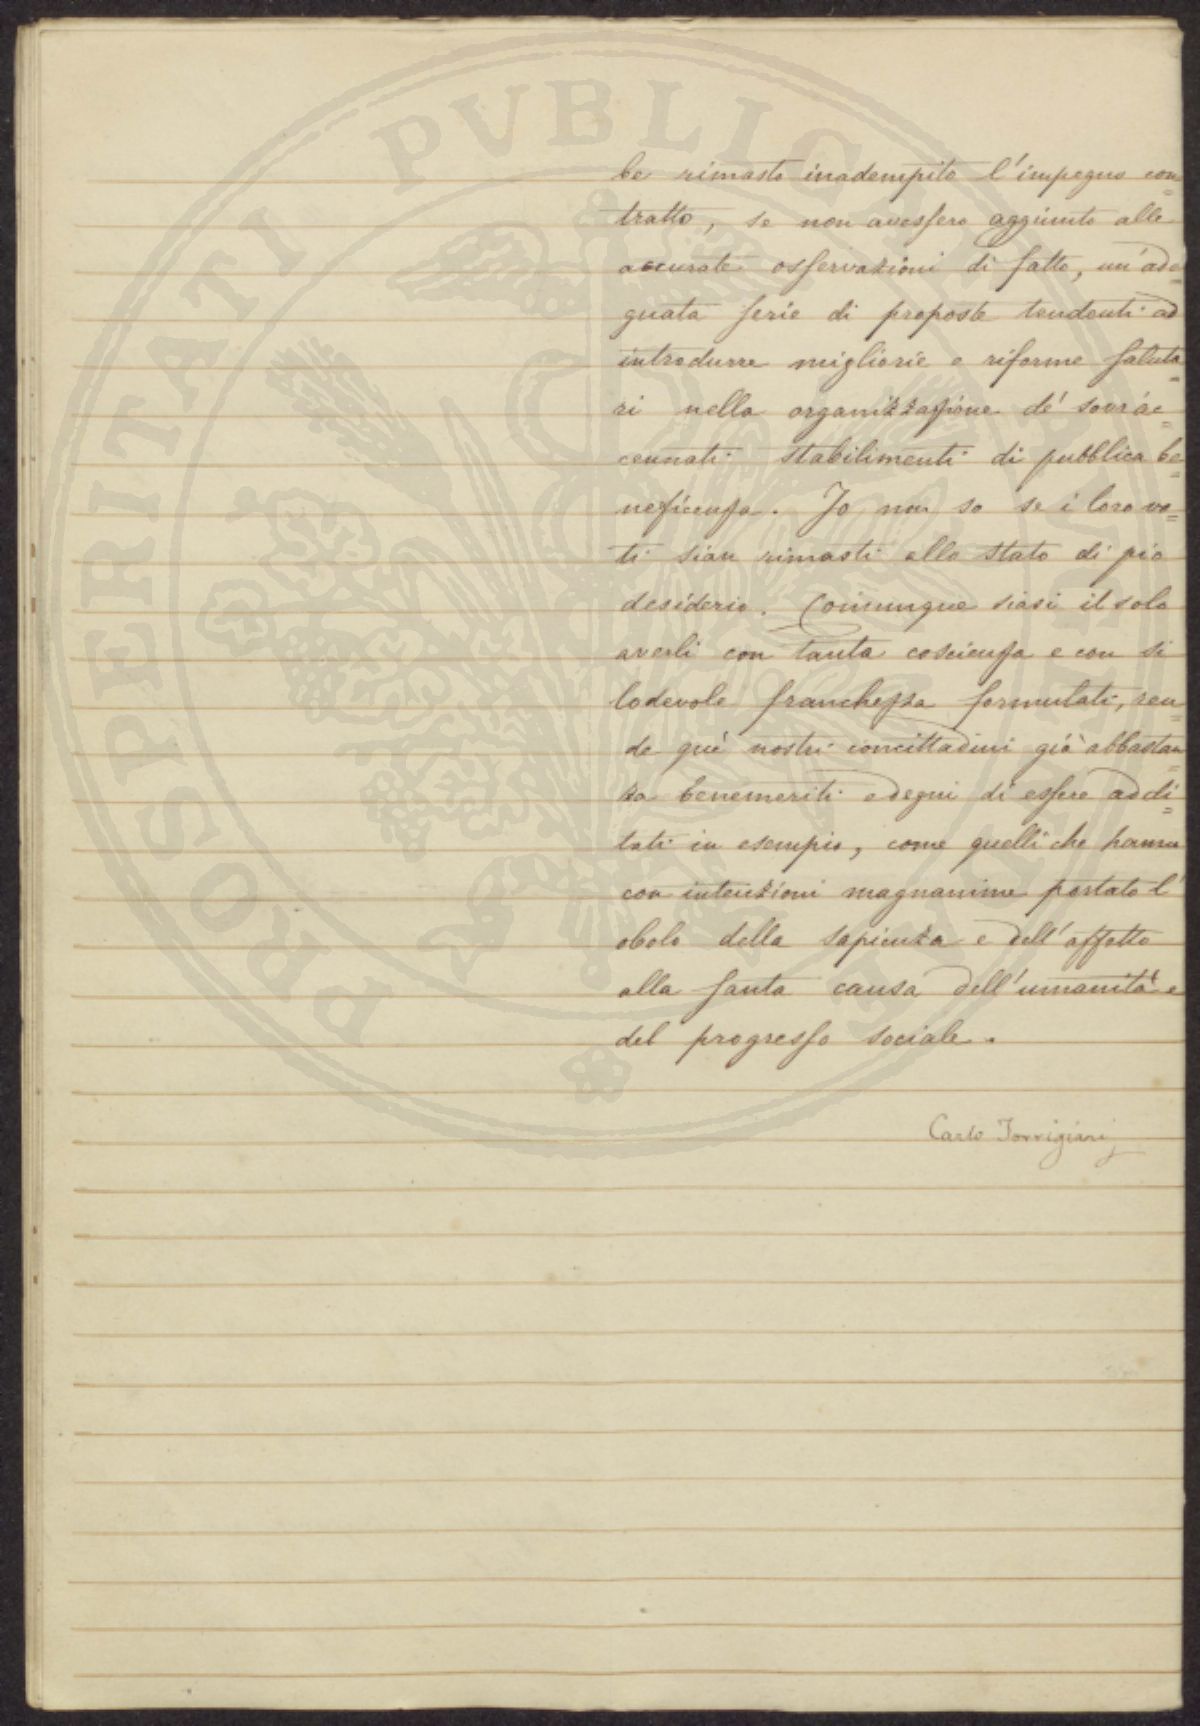 be rimasto inadempito l'impegno con=
tratto, se non avessero aggiunto alle
accurate osservazioni di fatto, un'ade=
guata serie di proposte tendenti ad
introdurre migliorie e riforme saluta=
ri nella organizzazione de' sovrac=
cennati stabilimenti di pubblica be=
neficenza. Io non so se i loro vo=
ti sian rimasti allo stato di pio
desiderio. Comunque siasi il solo
averli con tanta coscienza e con sì
lodevole franchezza formulati, ren=
de que' nostri concittadini già abbastan=
za benemeriti e degni di essere addi=
tati in esempio, come quelli che hanno
con intenzioni magnanime portato l'
obolo della sapienza e dell'affetto
alla santa causa dell'umanità e
del progresso sociale.
Carlo Torrigiani
PROSPERITATI PVBLICAE